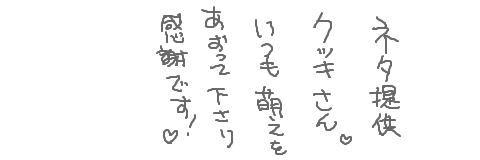 ネタ提供
クッキさん♡
いつも萌えを
あおって下さり
感謝です!♡